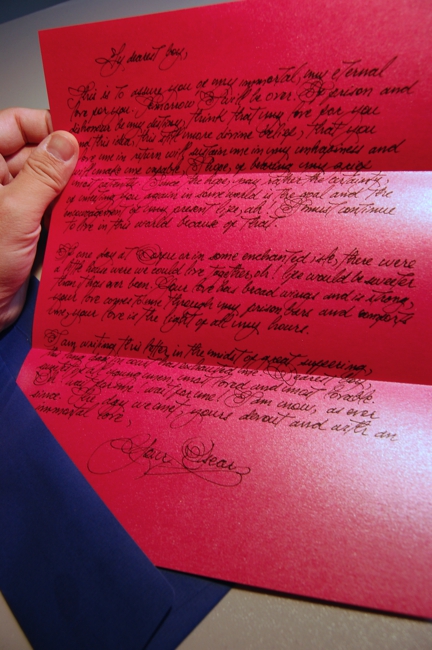 My dearest boy,
This is to assure you of my immortal, my eternal
love for you. Tomorrow all will be over. If prison and
dishonour be my destiny, think that my love for you
and this idea, this still more divine belief, that you
love me in return will sustain me in my unhappiness and
will make me capable, I hope, of bearing my grief
most patiently. Since the hope, nay rather the certainty,
of meeting you again in some world is the goal and the
encouragement of my present life, ah! I must continue
to live in this world because of that.
If one day at Corfu or in some enchanted isle, there were
a little house were we could live together, oh! Life would be sweeter
than it has ever been. Your love has broad wings and is strong,
your love comes to me through my prison bars and comforts
me, your love is the light of all my hours.
I am writing this letter in the midst of great suffering;
Dearest boy,
sweetest of all young men, most loved and most lovable.
Oh! Wait for me! Wait for me! I am now, as ever
since the day we met, yours devout and with an
immortal love,
Your Oscar